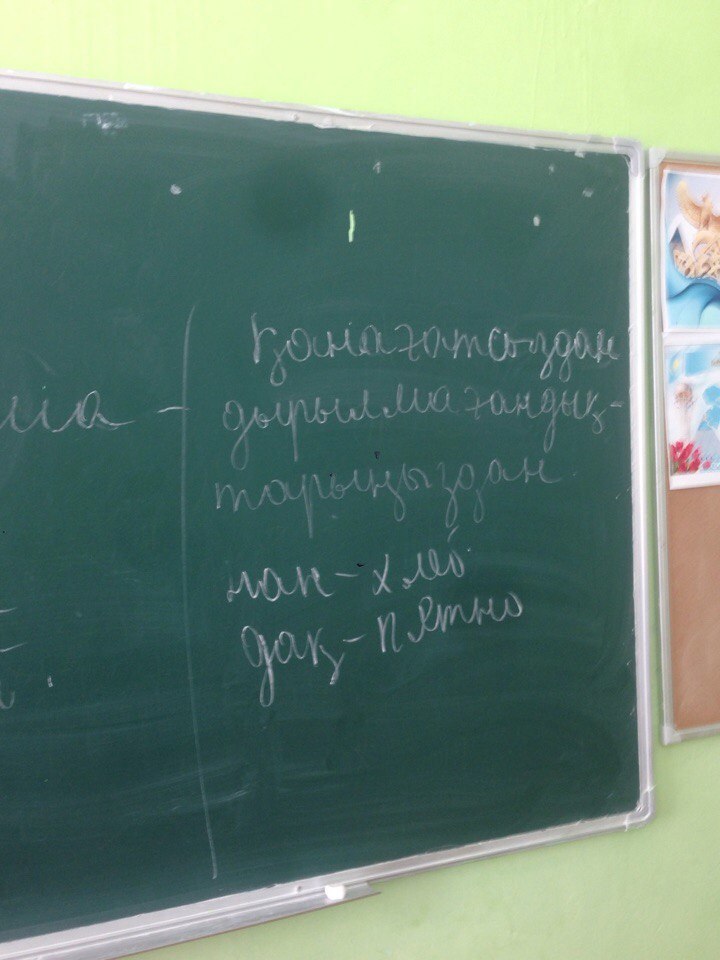 қанағатсыздан
дырылмағандық-
тарыңыздан
нан - хлеб
дақ - пятно